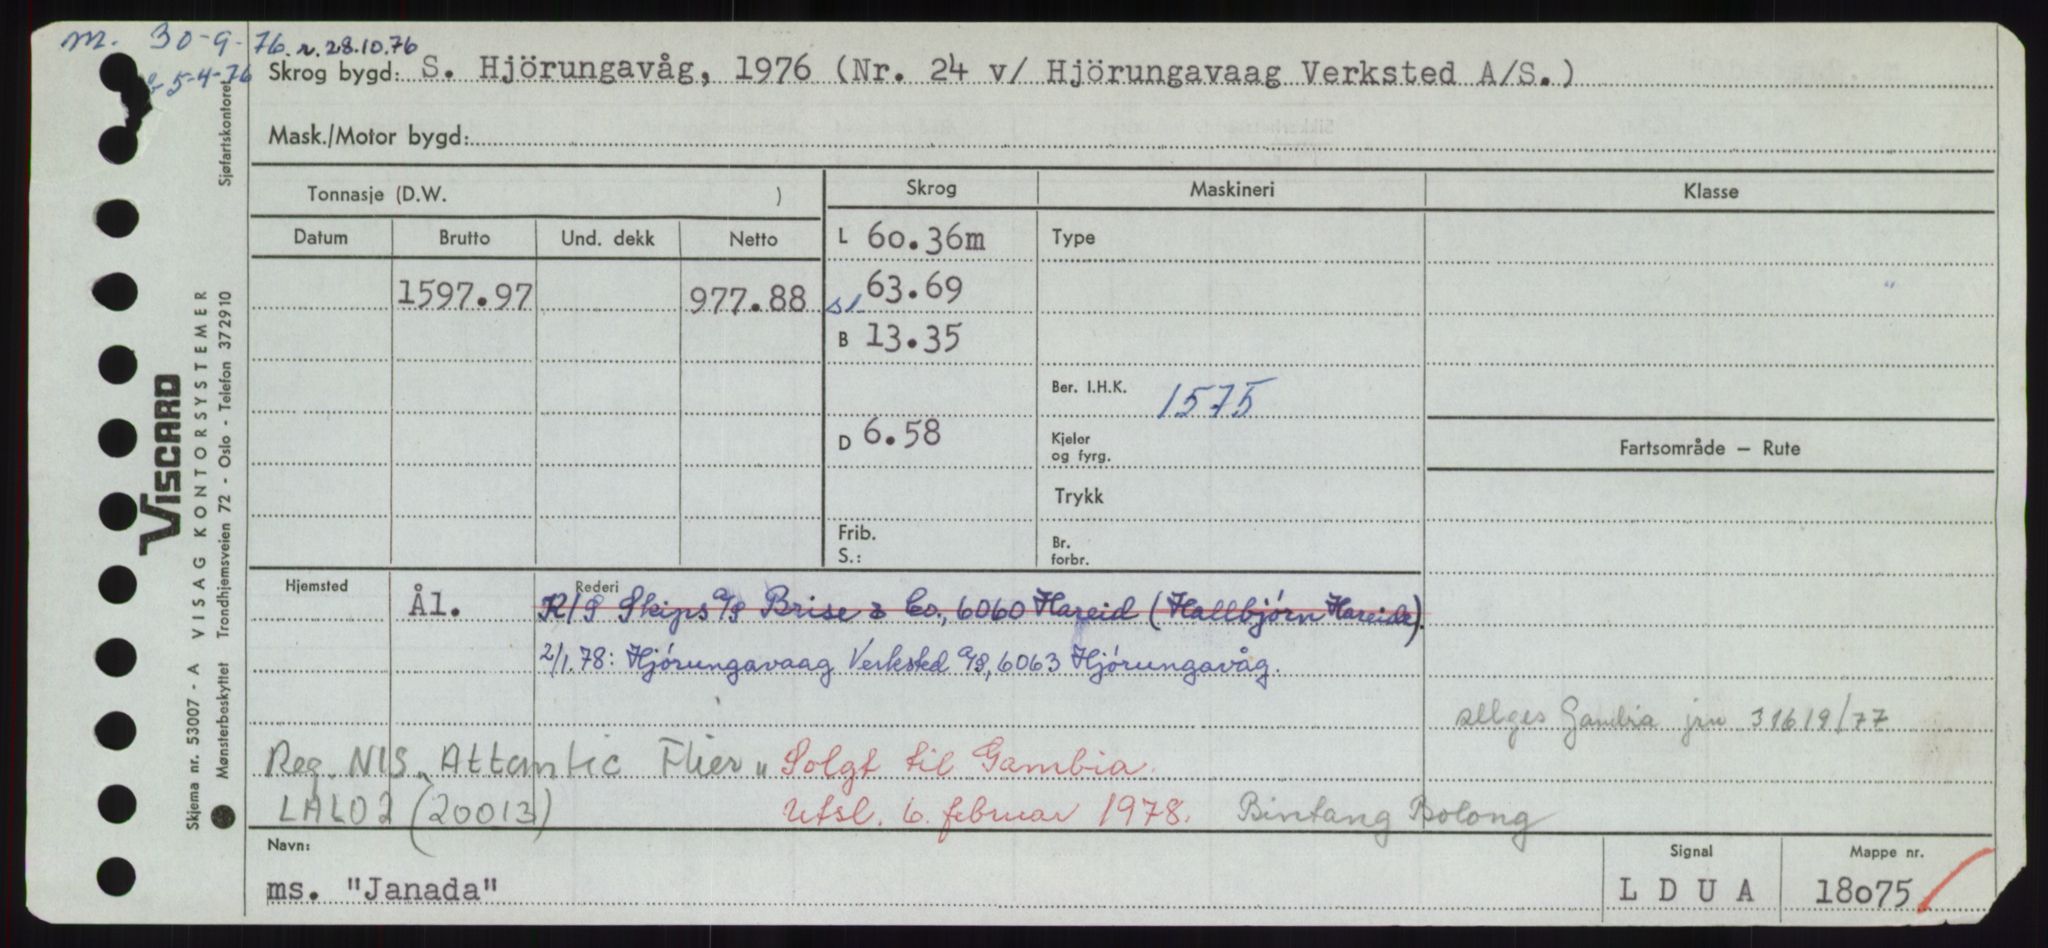 m. 30-9-76. r. 28.10.76
5-4-76
Skrog bygd: S. Hjörungavåg, 1976 (Nr. 24 v/ Hjörungavaag Verksted A/S.)
Mask./Motor bygd:
Tonnasje (D.W. )
Skrog
Maskineri
Klasse
Datum Brutto Und. dekk Netto
L 60.36m
Type
1597.97 977.88
sl. 63.69
B 13.35
Ber. I.H.K. 1575
D 6.58
Kjeler
og fyrg.
Fartsområde — Rute
Trykk
Frib.
S.:
Br.
forbr.
Hjemsted
Ål.
Rederi
K/S Skips a/s Brise & Co., 6060 Hareid (Hallbjørn Hareide).
2/1.78: Hjørungavaag Verksted a/s, 6063 Hjørungavåg.
selges Gambia jnr 31619/77
Reg. NIS "Atlantic Flier" Solgt til Gambia.
LALO2 (20013) Utsl. 6. februar 1978. Bintang Bolong
Navn:
ms. "Janada"
Signal
LDUA
Mappe nr.
18075
Skjema nr. 53007 - A VISAG KONTORSYSTEMER
VISCARD
Mønsterbeskyttet Trondhjemsveien 72 - Oslo - Telefon 372910
Sjøfartskontoret